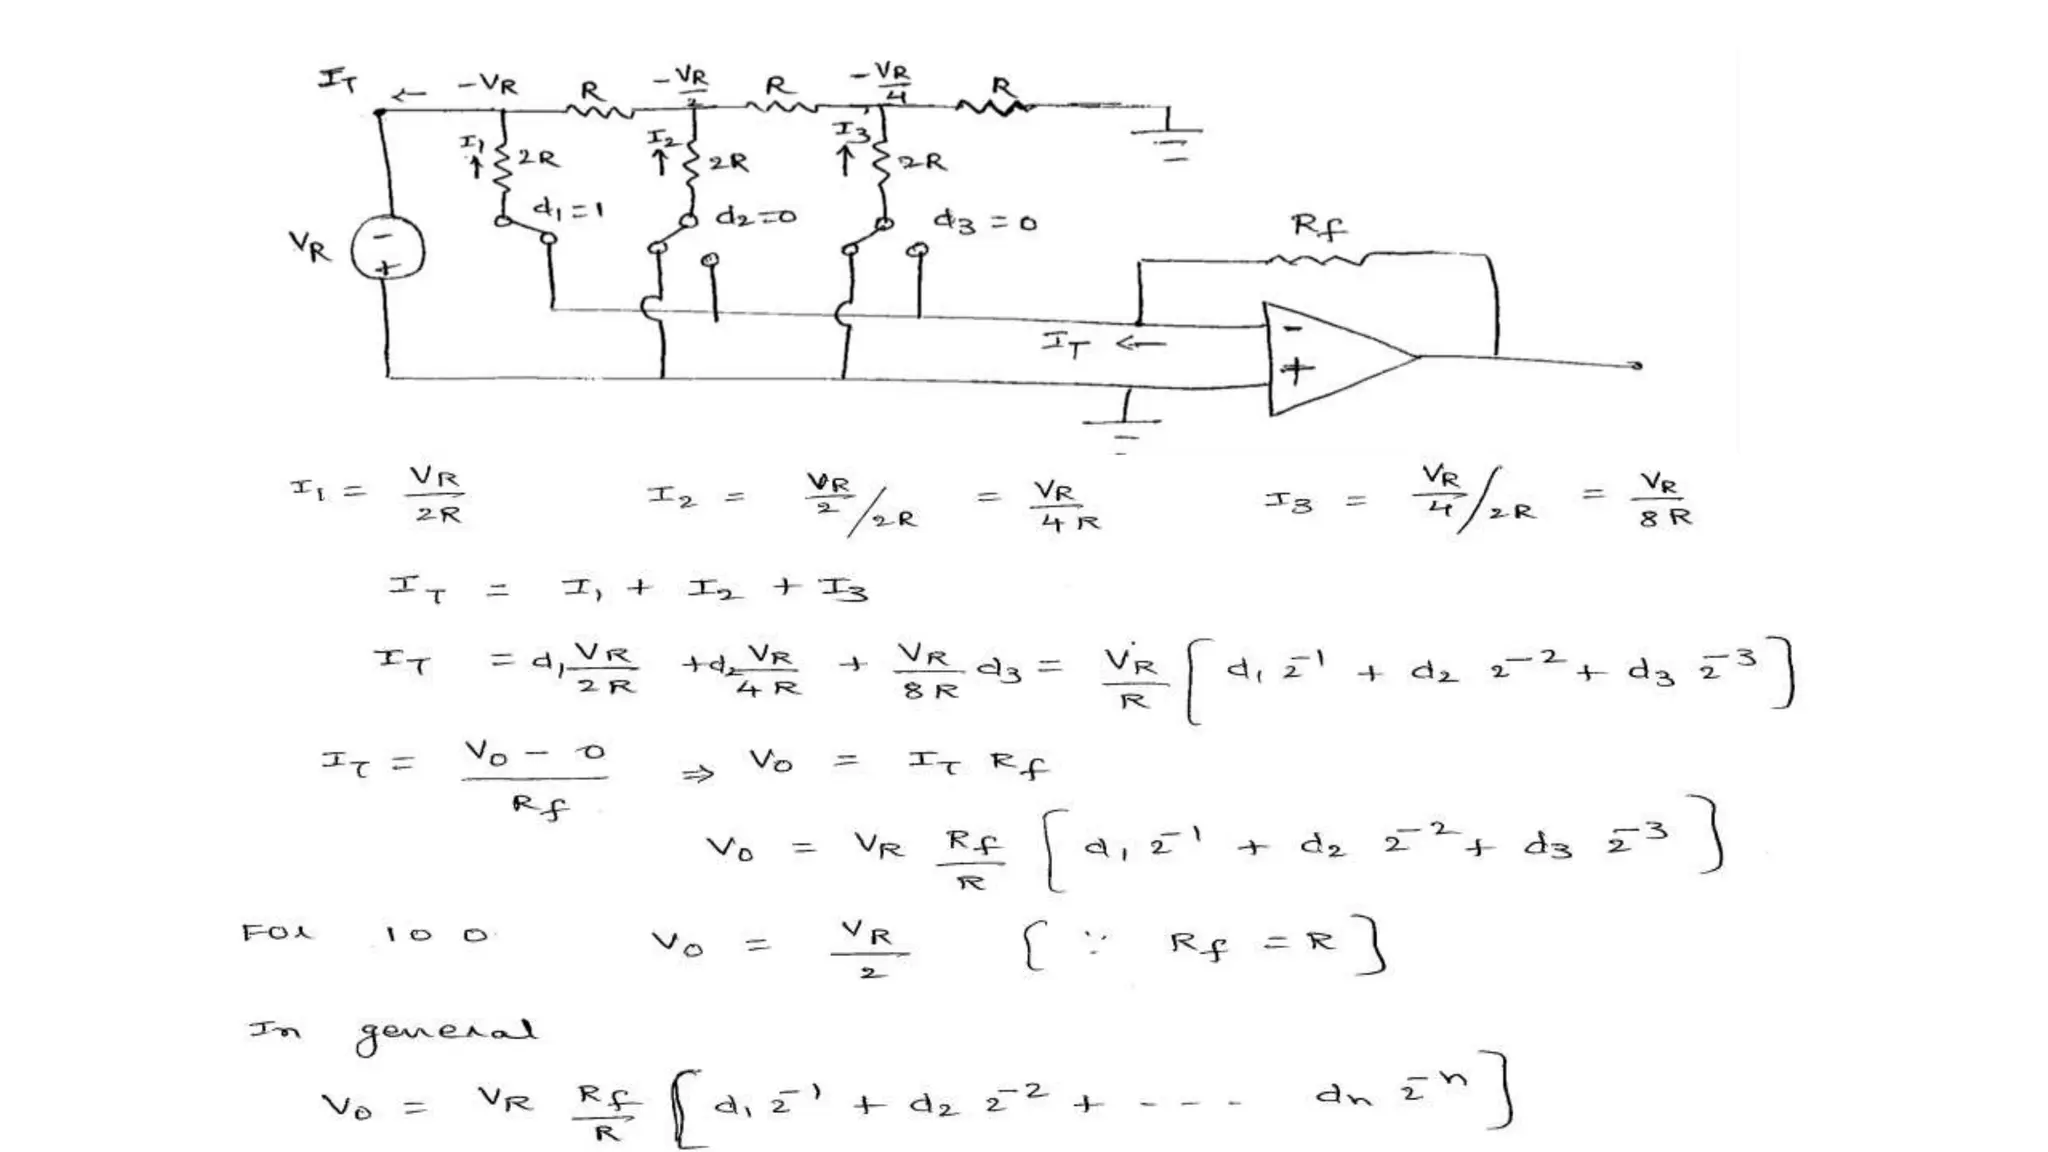 I_T ← -V_R R -V_R/2 R -V_R/4 R
I_1 ↑ 2R I_2 ↑ 2R I_3 ↑ 2R
d_1 = 1 d_2 = 0 d_3 = 0 R_f
V_R - +
I_T ← - +
I_1 = V_R/2R I_2 = V_R/2 / 2R = V_R/4R I_3 = V_R/4 / 2R = V_R/8R
I_T = I_1 + I_2 + I_3
I_T = d_1 V_R/2R + d_2 V_R/4R + V_R/8R d_3 = V_R/R [ d_1 2^-1 + d_2 2^-2 + d_3 2^-3 ]
I_T = V_0 - 0 / R_f ⇒ V_0 = I_T R_f
V_0 = V_R R_f/R [ d_1 2^-1 + d_2 2^-2 + d_3 2^-3 ]
For 1 0 0 V_0 = V_R/2 { ∵ R_f = R }
In general
V_0 = V_R R_f/R [ d_1 2^-1 + d_2 2^-2 + - - - d_n 2^-n ]